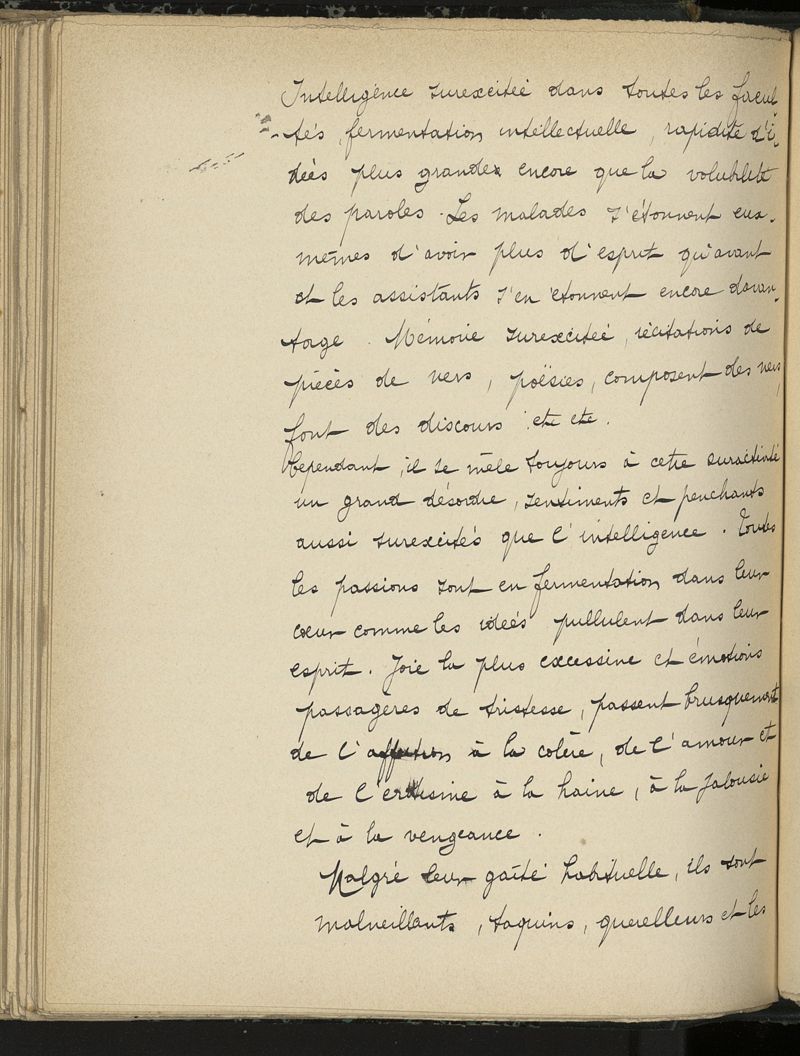 Intelligence surexcitée dans toutes les facul-
-tés, fermentation intellectuelle, rapidité d'i-
dées plus grandes encore que la volubilité
des paroles. Les malades s'étonnent eux-
mêmes d'avoir plus d'esprit qu'avant
et les assistants s'en étonnent encore davan-
tage. Mémoire surexcitée, récitations de
pièces de vers, poësies, composent des vers,
font des discours etc etc.
Cependant, il se mêle toujours à cette suractivité
un grand désordre, sentiments et penchants
aussi surexcités que l'intelligence. Toutes
les passions sont en fermentation dans leur
cœur comme les idées pullulent dans leur
esprit. Joie la plus excessive et émotions
passagères de tristesse, passent brusquement
de l'affection à la colère, de l'amour et
de l'érotisme à la haine, à la jalousie
et à la vengeance.
Malgré leur gaîté habituelle, ils sont
malveillants, taquins, querelleurs et les